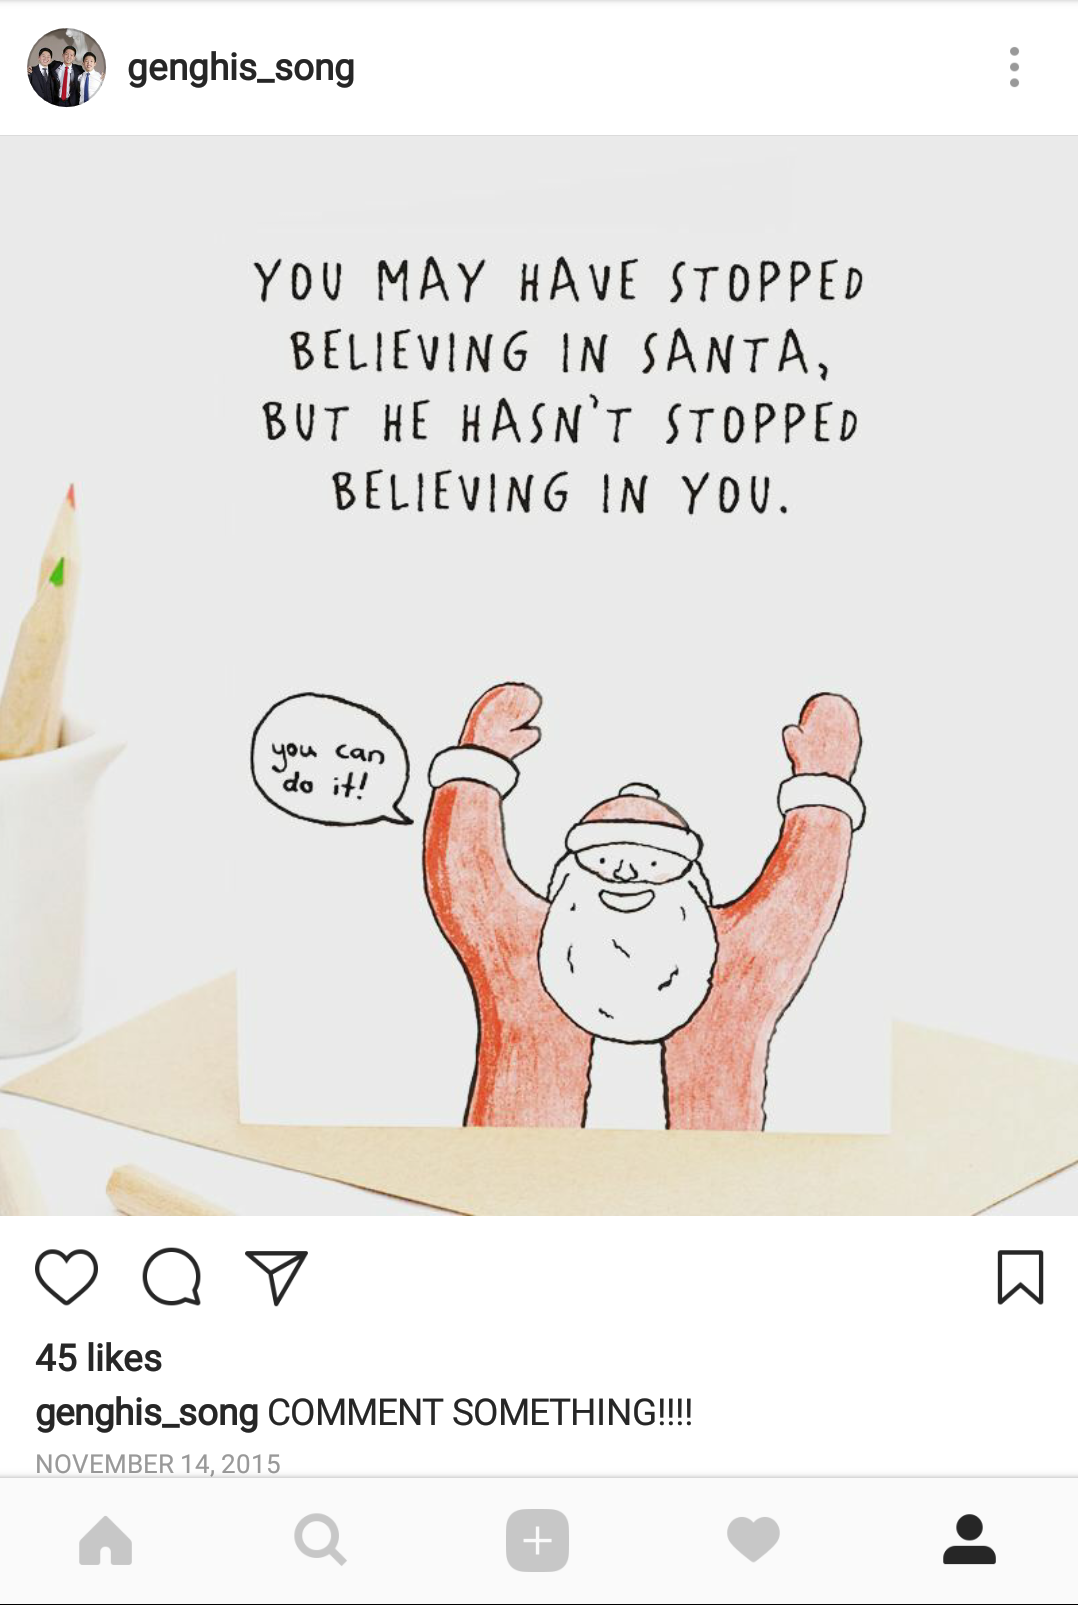 genghis_song
YOU MAY HAVE STOPPED
BELIEVING IN SANTA,
BUT HE HASN'T STOPPED
BELIEVING IN YOU.
you can
do it!
45 likes
genghis_song COMMENT SOMETHING!!!!
NOVEMBER 14, 2015